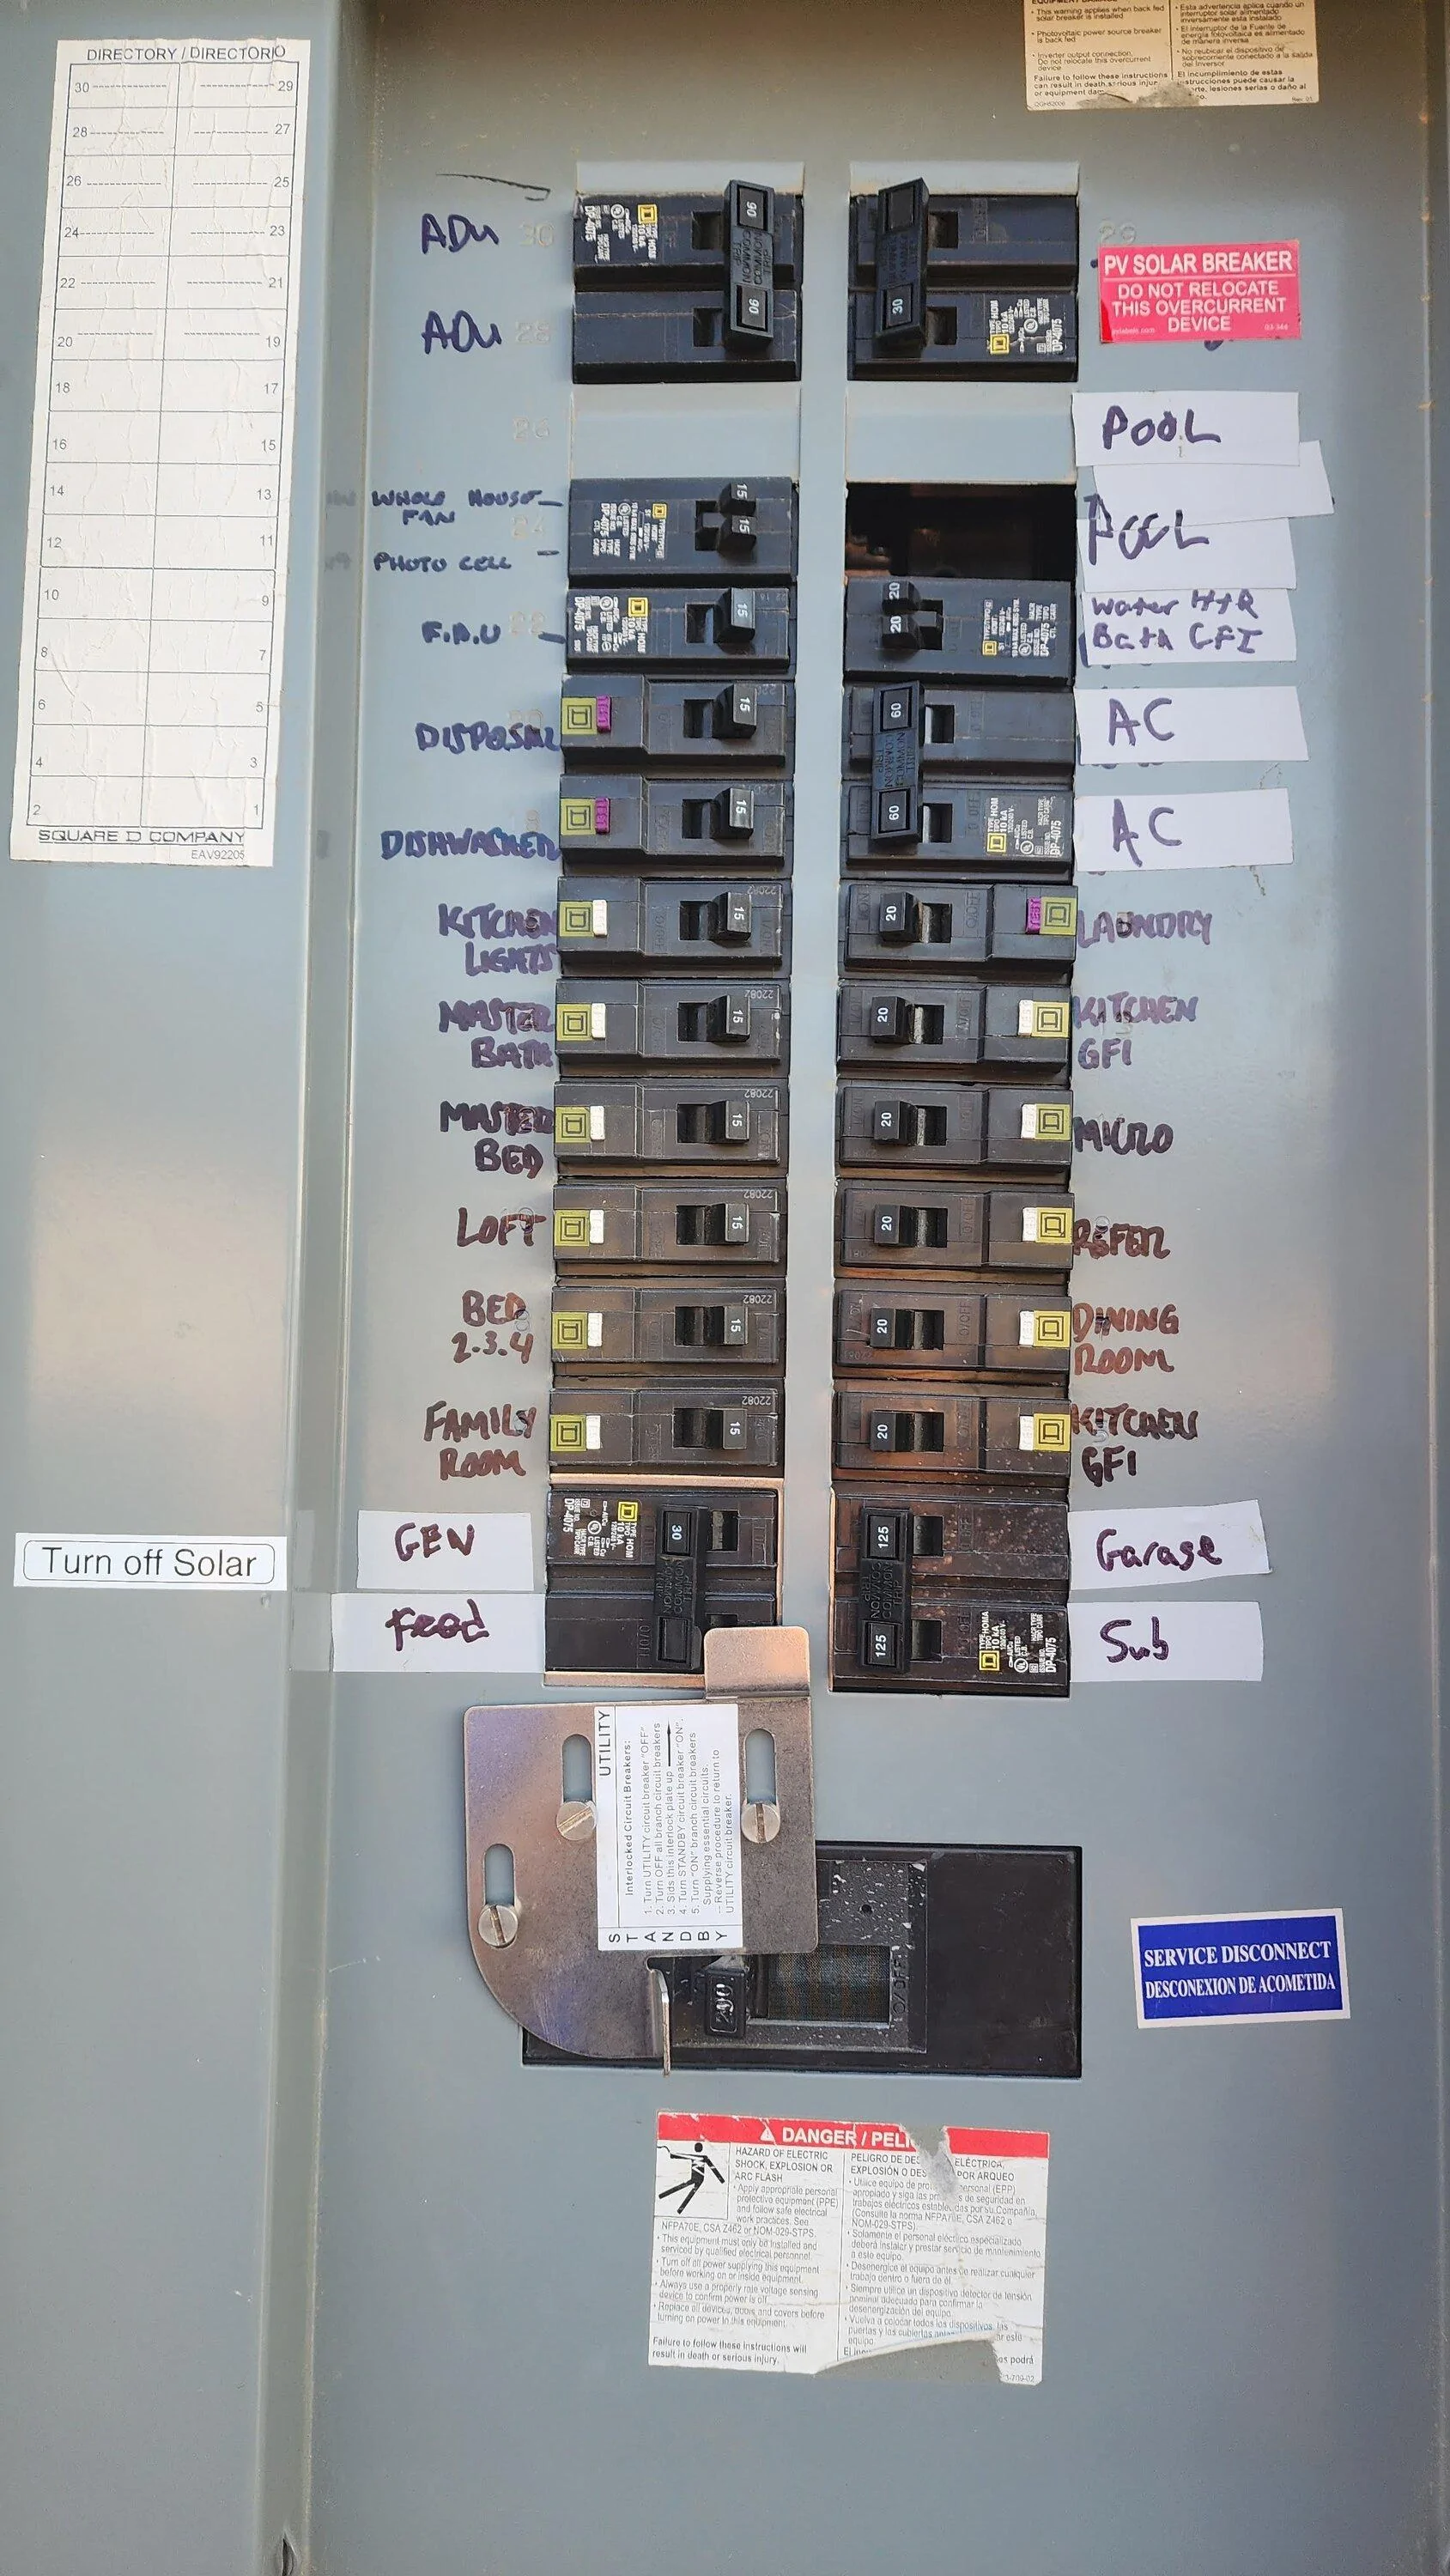 DIRECTORY / DIRECTORIO
30 29
28 27
26 25
24 23
22 21
20 19
18 17
16 15
14 13
12 11
10 9
8 7
6 5
4 3
2 1
SQUARE D COMPANY
EAV92205
Turn off Solar
• This warning applies when back fed
solar breaker is installed
• Photovoltaic power source breaker
is back fed
• Inverter output connection.
Do not relocate this overcurrent
device
Failure to follow these instructions
can result in death, serious
or equipment
• Esta advertencia aplica cuando un
interruptor solar alimentado
inversamente esta instalado
• El interruptor de la Fuente de
energía fotovoltaica es alimentado
de manera inversa
• No reubicar el dispositivo de
sobrecorriente conectado a la salida
del inversor
El incumplimiento de estas
instrucciones puede causar la
lesiones serias o daño al
ADU 30
ADU 28
26
WHOLE HOUSE
FAN
24
PHOTO CELL
F.A.U 22
DISPOSAL
DISHWASHER
KITCHEN
LIGHTS
MASTER
BATH
MASTER
BED
LOFT
BED
2-3-4
FAMILY
ROOM
GEN
Feed
90
COMMON
TRIP
90
15
15
15
15
15
15
15
15
15
15
15
30
COMMON
TRIP
29
PV SOLAR BREAKER
DO NOT RELOCATE
THIS OVERCURRENT
DEVICE
POOL
POOL
Water HtR
Bath GFI
AC
AC
LAUNDRY
KITCHEN
GFI
MICRO
REFER
DINING
ROOM
KITCHEN
GFI
Garage
Sub
30
20
20
60
COMMON
TRIP
60
20
20
20
20
20
20
125
COMMON
TRIP
125
UTILITY
Interlocked Circuit Breakers:
1. Turn UTILITY circuit breaker "OFF".
2. Turn OFF all branch circuit breakers
3. Slids this interlock plate up
4. Turn STANDBY circuit breaker "ON".
5. Turn "ON" branch circuit breakers
Supplying essential circuits.
-- Reverse procedure to return to
UTILITY circuit breaker.
STANDBY
200
SERVICE DISCONNECT
DESCONEXION DE ACOMETIDA
DANGER / PELI
HAZARD OF ELECTRIC
SHOCK, EXPLOSION OR
ARC FLASH
• Apply appropriate personal
protective equipment (PPE)
and follow safe electrical
work practices. See
NFPA70E, CSA Z462 or NOM-029-STPS.
• This equipment must only be installed and
serviced by qualified electrical personnel.
• Turn off all power supplying this equipment
before working on or inside equipment.
• Always use a properly rate voltage sensing
device to confirm power is off.
• Replace all devices, doors, and covers before
turning on power to this equipment.
Failure to follow these instructions will
result in death or serious injury.
PELIGRO DE DES ELÉCTRICA,
EXPLOSIÓN O DES POR ARQUEO
• Utilice equipo de pro personal (EPP)
apropiado y siga las pr s de seguridad en
trabajos eléctricos establecidas por su Compañía.
(Consulte la norma NFPA70E, CSA Z462 o
NOM-029-STPS).
• Solamente el personal eléctrico especializado
deberá instalar y prestar servicio de mantenimiento
a este equipo.
• Desenergice el equipo antes de realizar cualquier
trabajo dentro o fuera de él.
• Siempre utilice un dispositivo detector de tensión
nominal adecuado para confirmar la
desenergización del equipo.
• Vuelva a colocar todos los dispositivos, las
puertas y las cubiertas
equipo.
podrá